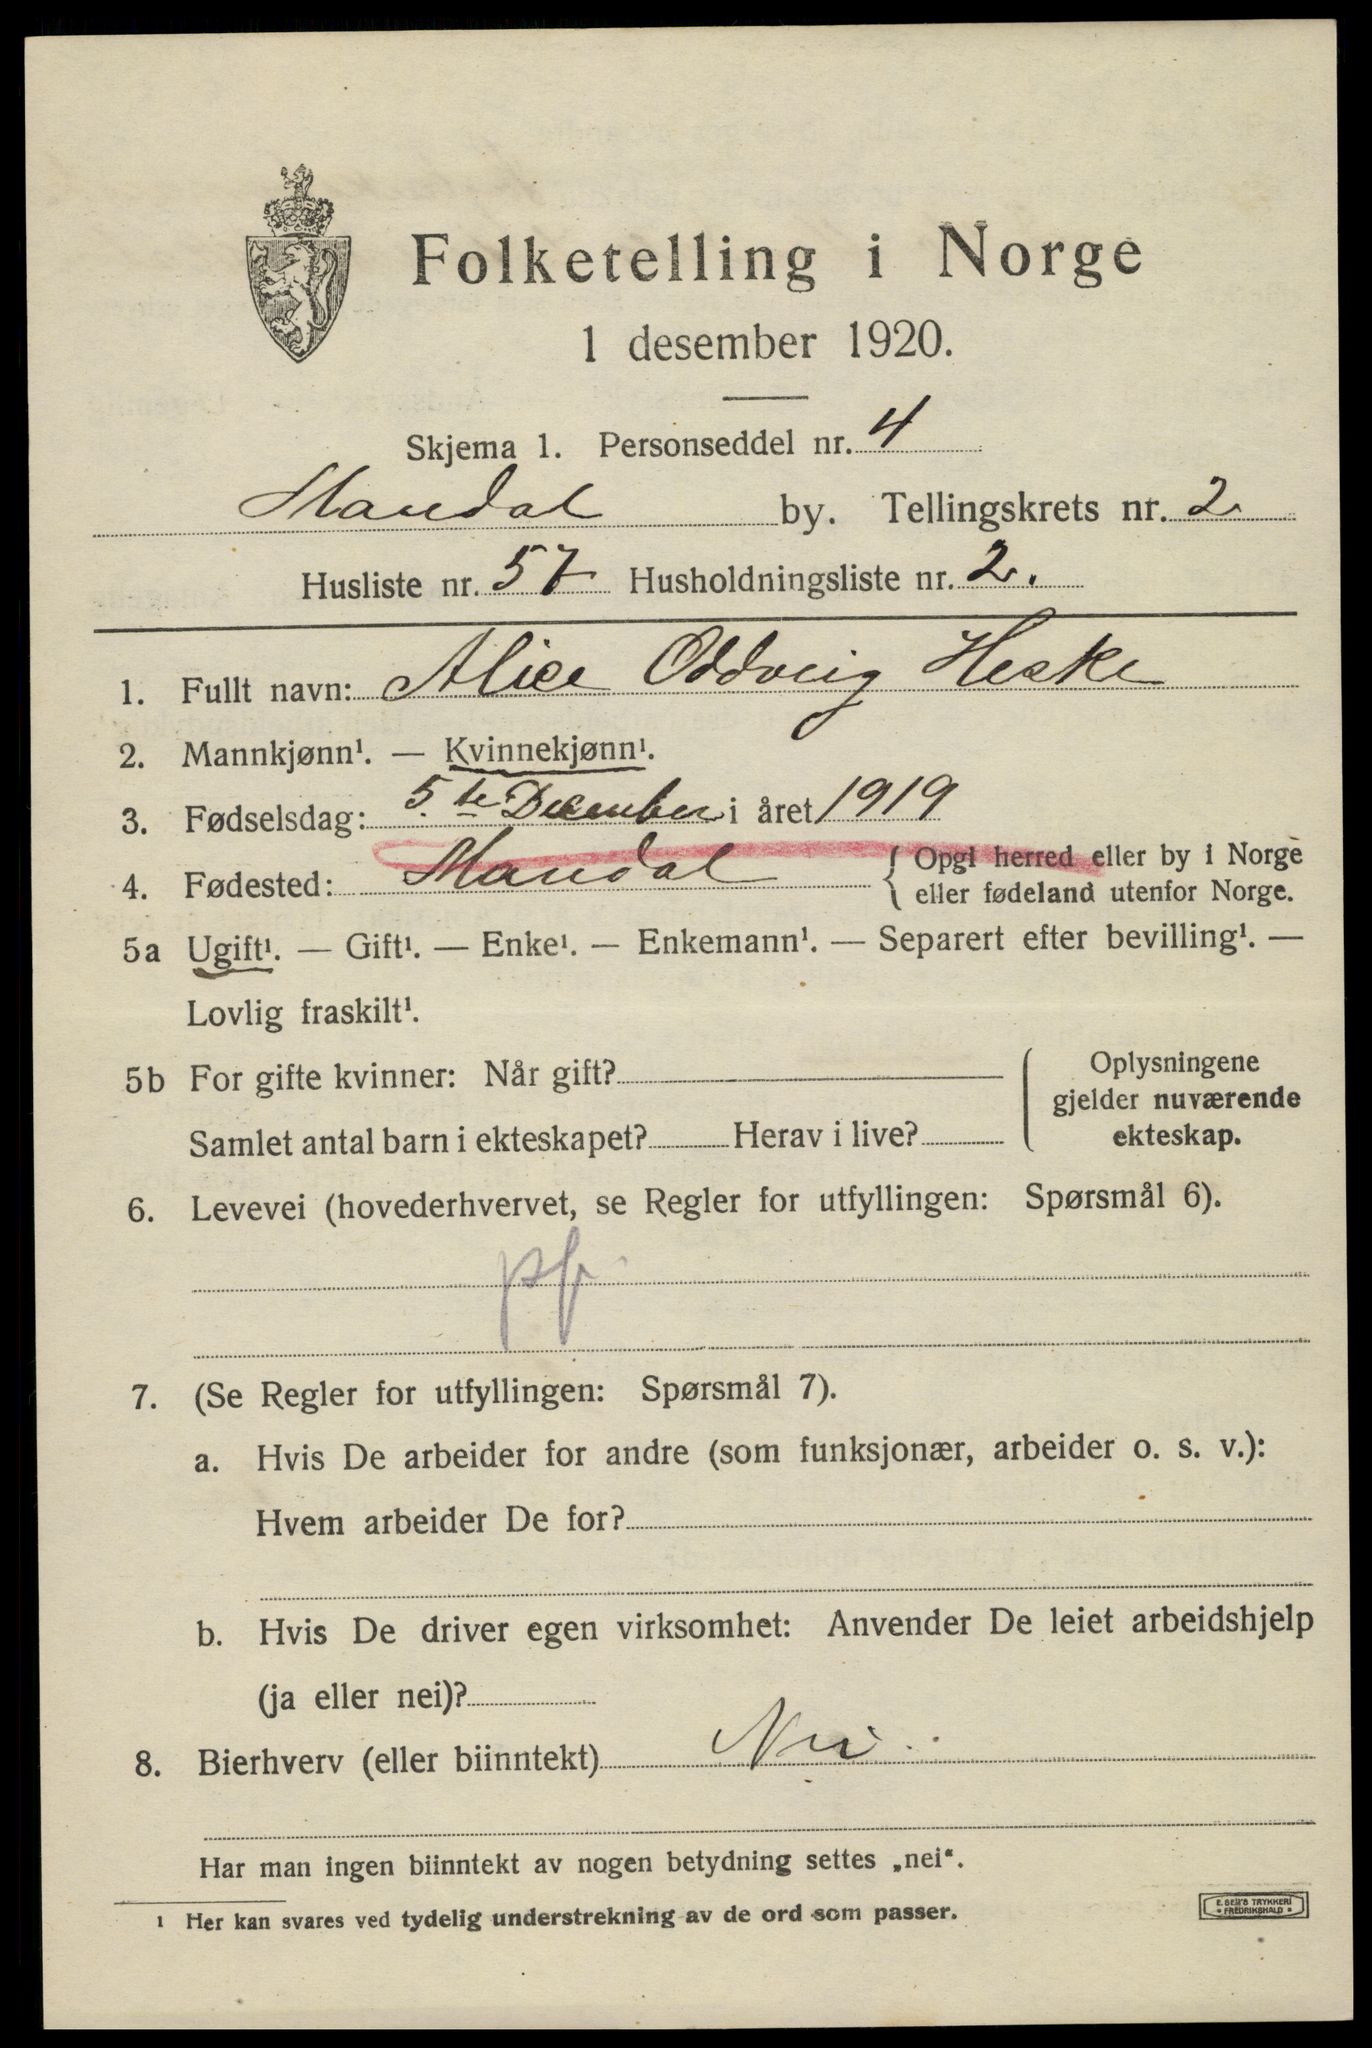 Folketelling i Norge
1 desember 1920.
Skjema 1. Personseddel nr. 4
Mandal by. Tellingskrets nr. 2
Husliste nr. 57 Husholdningsliste nr. 2.
1. Fullt navn: Alice Oddveig Heske
2. Mannkjønn¹. — Kvinnekjønn¹.
3. Fødselsdag: 5te December i året 1919
4. Fødested: Mandal { Opgi herred eller by i Norge
eller fødeland utenfor Norge.
5a Ugift¹. — Gift¹. — Enke¹. — Enkemann¹. — Separert efter bevilling¹. —
Lovlig fraskilt¹.
5b For gifte kvinner: Når gift?
Samlet antal barn i ekteskapet? Herav i live?
Oplysningene
gjelder nuværende
ekteskap.
6. Levevei (hovederhvervet, se Regler for utfyllingen: Spørsmål 6).
pf.
7. (Se Regler for utfyllingen: Spørsmål 7).
a. Hvis De arbeider for andre (som funksjonær, arbeider o. s. v.):
Hvem arbeider De for?
b. Hvis De driver egen virksomhet: Anvender De leiet arbeidshjelp
(ja eller nei)?
8. Bierhverv (eller biinntekt) Nei
Har man ingen biinntekt av nogen betydning settes „nei“.
¹ Her kan svares ved tydelig understrekning av de ord som passer.
E. SEM'S TRYKKERI
FREDRIKSHALD